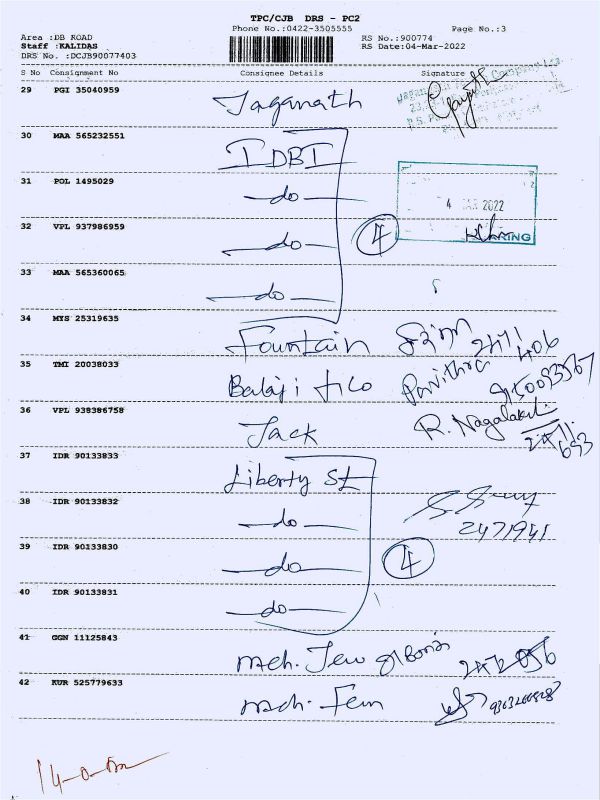 TPC/CJB DRS - PC2
Phone No.:0422-3505555 Page No.:3
Area :DB ROAD RS No.:900774
Staff :KALIDAS RS Date:04-Mar-2022
DRS No. :DCJB90077403
S No Consignment No Consignee Details Signature
29 PGI 35040959 Jaganath
30 MAA 565232551 IDBI
31 POL 1495029 -do-
4 MAR 2022
32 VPL 937986959 -do- 4
33 MAA 565360065 -do-
34 MYS 25319635 Fountain
35 TMI 20038033 Balaji Pavithra
36 VPL 938386758 Jack R. Nagalakshmi
37 IDR 90133833 Liberty St
38 IDR 90133832 -do- 2471941
39 IDR 90133830 -do- 4
40 IDR 90133831 -do-
41 GGN 11125843 mch. Jew
42 KUR 525779633 mch. Fem